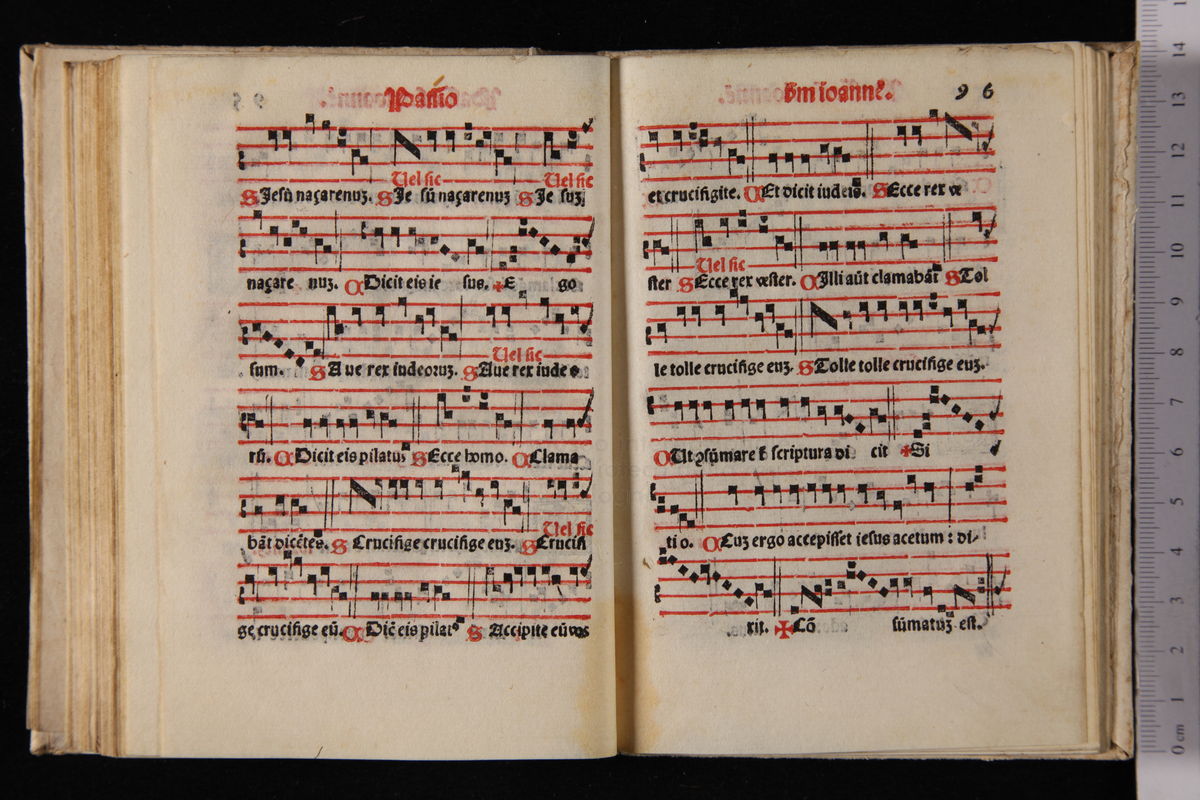 Passio
Uel sic Uel sic
S Jesū naçarenuȝ. S Je sū naçarenuȝ S Je suȝ
naçare nuȝ. C Dicit eis ie sus. ✠ E go
Uel sic
sum. S A ue rex iudeoruȝ. S Aue rex iude o
rū. C Dicit eis pilatus S Ecce homo. C Clama
Uel sic
bāt dicētes. S Crucifige crucifige euȝ. S Crucifi
ge crucifige eū. C Dic̄ eis pilatꝰ S Accipite eū vos
s̄m ioānnē. 96
et crucifigite. C Et dicit iudeis. S Ecce rex ve
Uel sic
ster S Ecce rex vester. C Illi aūt clamabāt S Tol
le tolle crucifige euȝ. S Tolle tolle crucifige euȝ.
C Ut ꝯsūmaret᷑ scriptura di cit ✠ Si
ti o. C Cuȝ ergo accepisset iesus acetum : di-
xit. ✠ Cō sūmatuȝ est.
0 cm 1 2 3 4 5 6 7 8 9 10 11 12 13 14